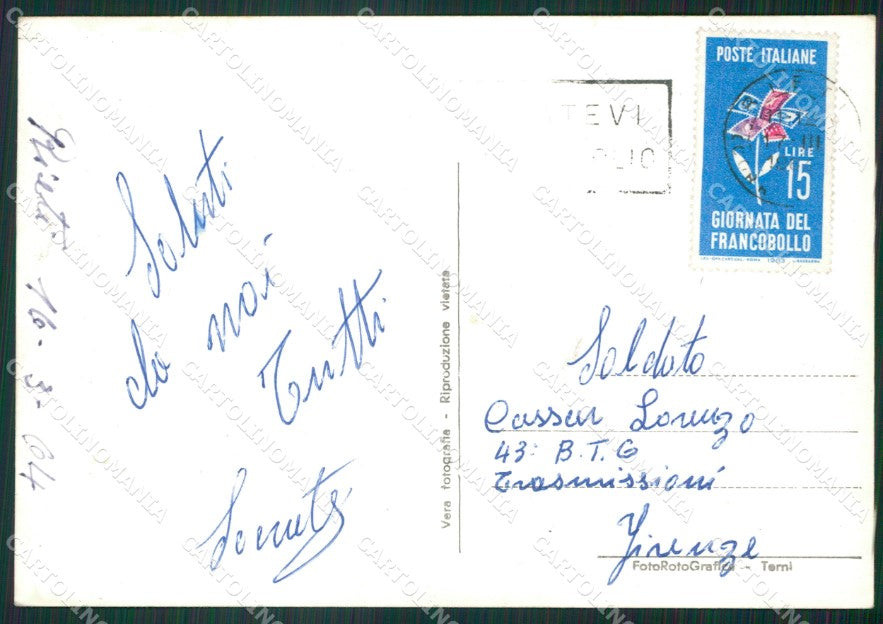 Rieti 16-3-64
Saluti
da noi
Tutti
Vera fotografia - Riproduzione vietata
TEVI
POSTE ITALIANE
LIRE
15
GIORNATA DEL
FRANCOBOLLO
1963
Soldato
Cassar Lorenzo
43° B.T.G
Trasmissioni
Firenze
FotoRotoGrafica - Terni
CARTOLINOMANIA